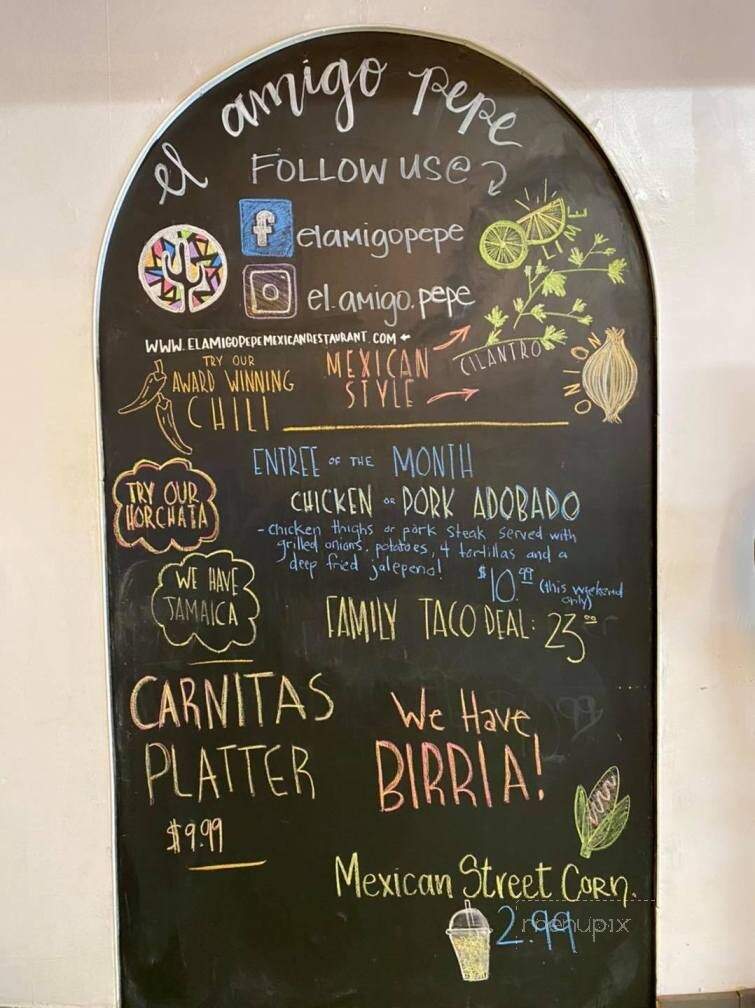 el amigo pepe
FOLLOW US@
elamigopepe
el.amigo.pepe
LIME
CILANTRO
ONION
WWW.ELAMIGOPEPEMEXICANRESTAURANT.COM
TRY OUR
AWARD WINNING
CHILI
MEXICAN
STYLE
ENTREE OF THE MONTH
CHICKEN OR PORK ADOBADO
- chicken thighs or pork steak served with
grilled onions, potatoes, 4 tortillas and a
deep fried jalepeno!
$10.99 (this weekend
only)
TRY OUR
HORCHATA
WE HAVE
JAMAICA
FAMILY TACO DEAL: 25.00
CARNITAS
PLATTER
$9.99
We Have
BIRRIA!
Mexican Street Corn.
2.99
menupix